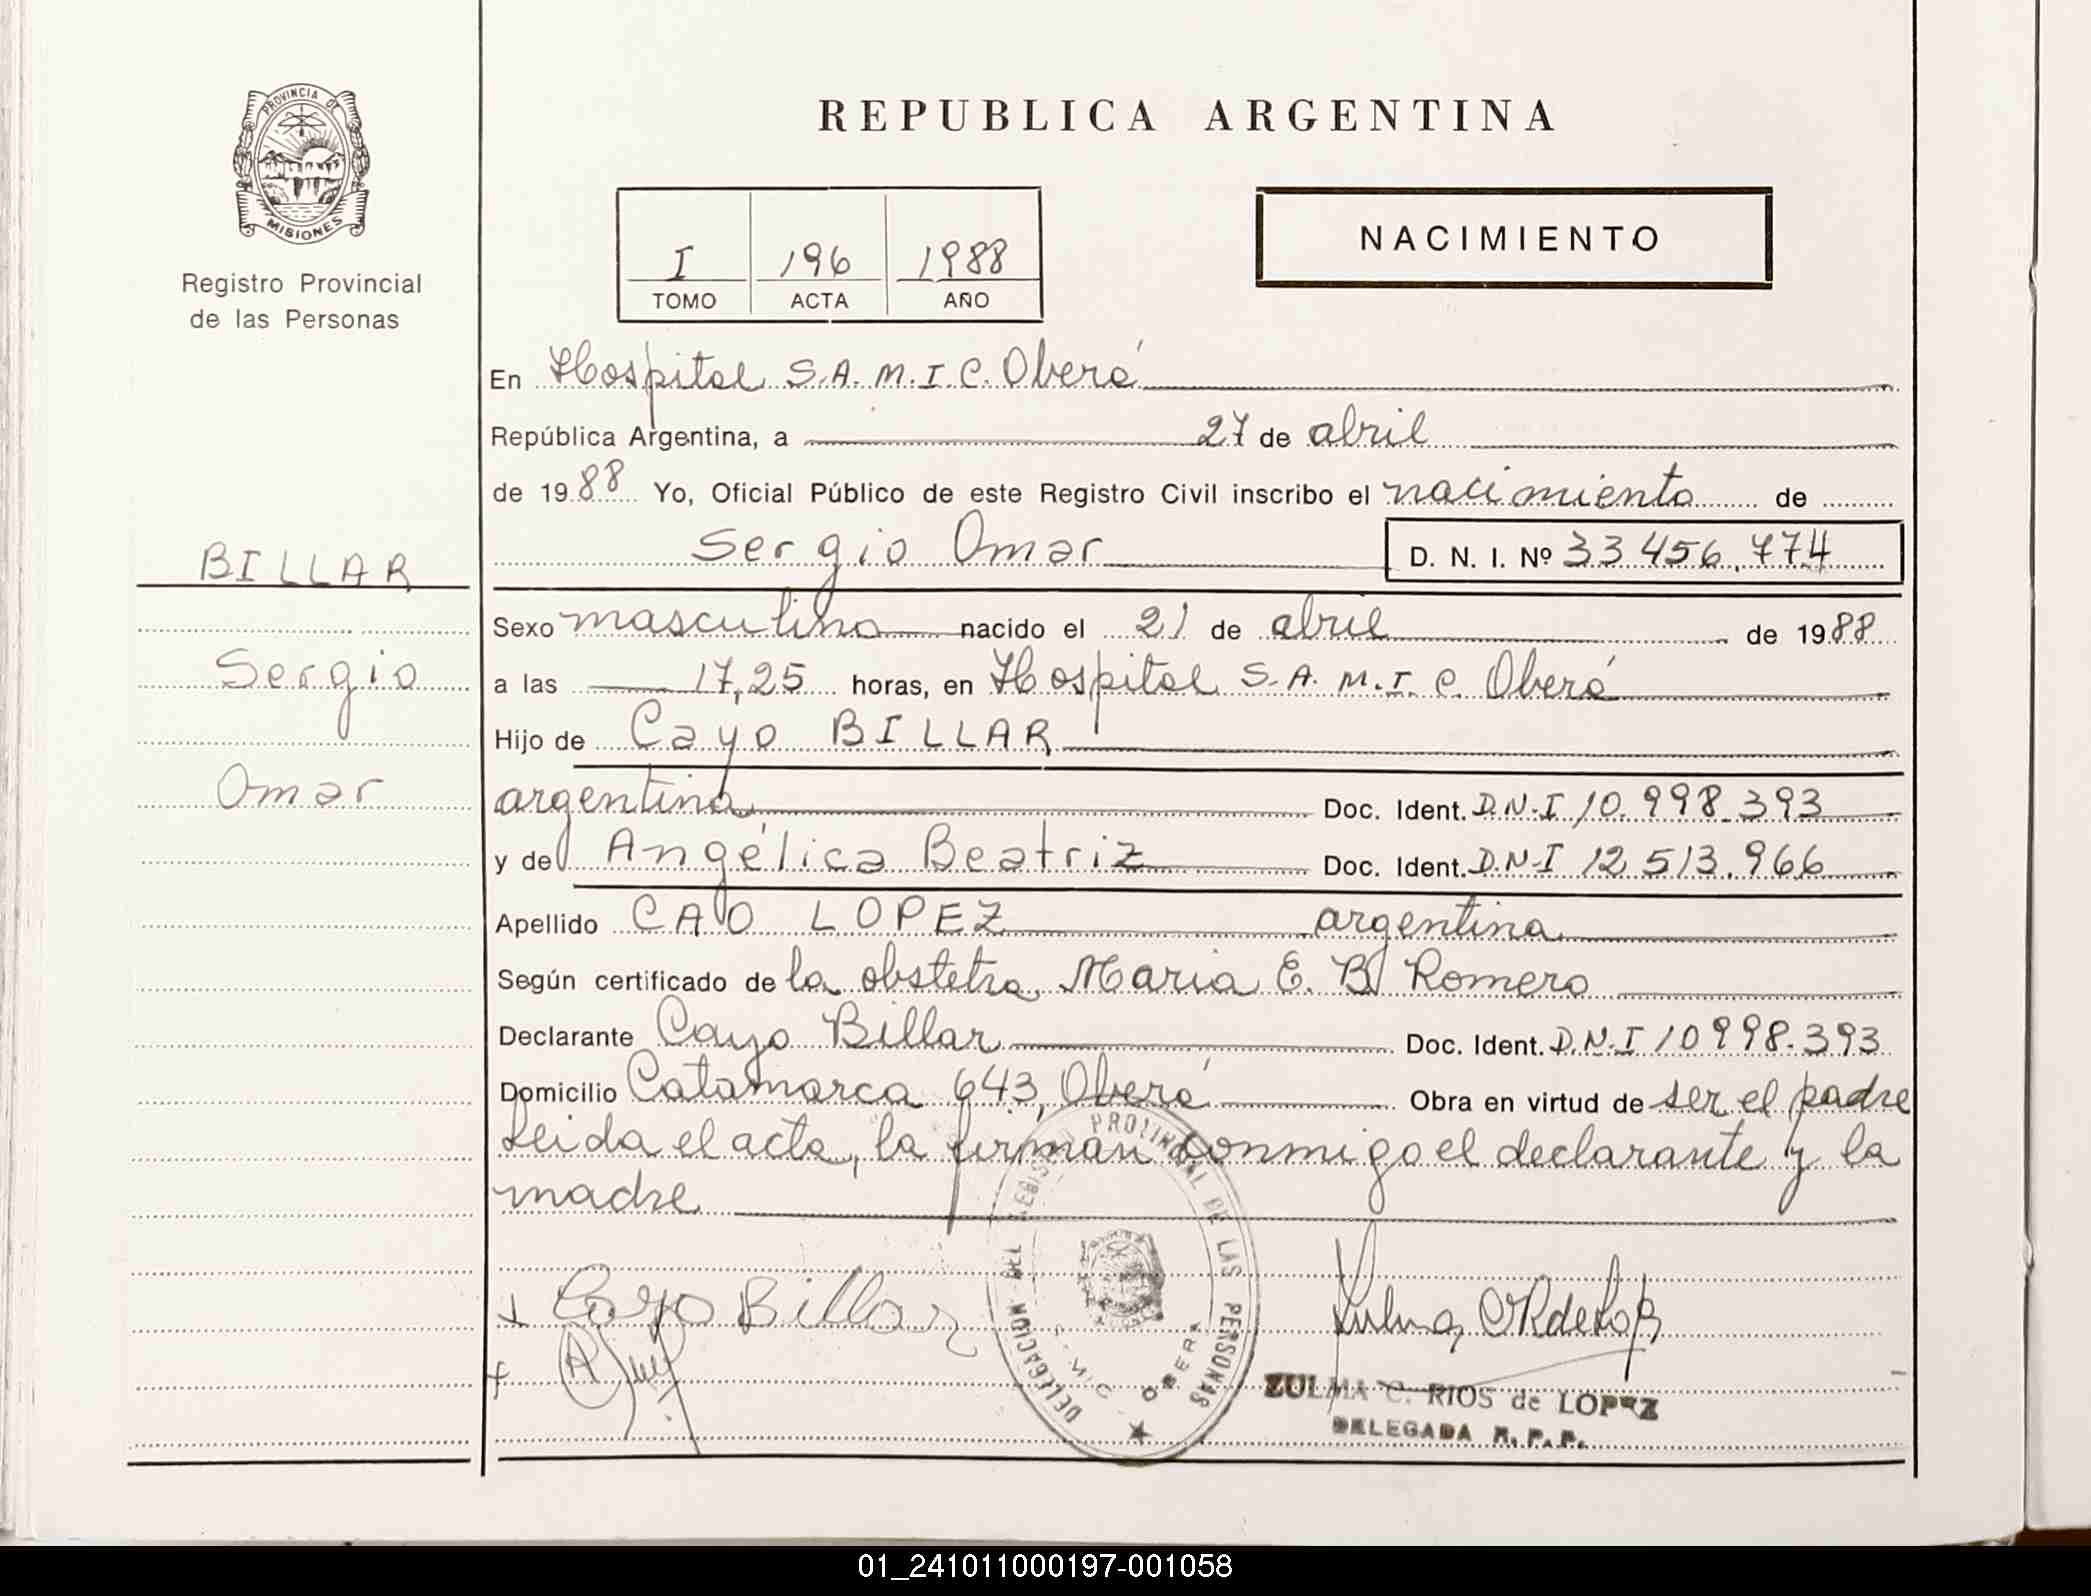 PROVINCIA DE
MISIONES
Registro Provincial
de las Personas
BILLAR
Sergio
Omar
REPUBLICA ARGENTINA
I 196 1988
TOMO ACTA AÑO
NACIMIENTO
En Hospital S.A.M.I.C. Oberá
República Argentina, a 27 de abril
de 1988 Yo, Oficial Público de este Registro Civil inscribo el nacimiento de
Sergio Omar D. N. I. Nº 33.456.774
Sexo masculino nacido el 21 de abril de 1988
a las 17,25 horas, en Hospital S.A.M.I.C. Oberá
Hijo de Cayo BILLAR
argentina Doc. Ident. D.N.I 10.998.393
y de Angélica Beatriz Doc. Ident. D.N.I 12.513.966
Apellido CAO LOPEZ argentina
Según certificado de la obstetra Maria E. B. Romero
Declarante Cayo Billar Doc. Ident. D.N.I 10998.393
Domicilio Catamarca 643, Oberá Obra en virtud de ser el padre
Leida el acta, la firman conmigo el declarante y la
madre
Cayo Billar
DELEGACION DEL REGISTRO PROVINCIAL DE LAS PERSONAS
OBERA
ZULMA C. RIOS de LOPEZ
DELEGADA R. P. P.
01_241011000197-001058